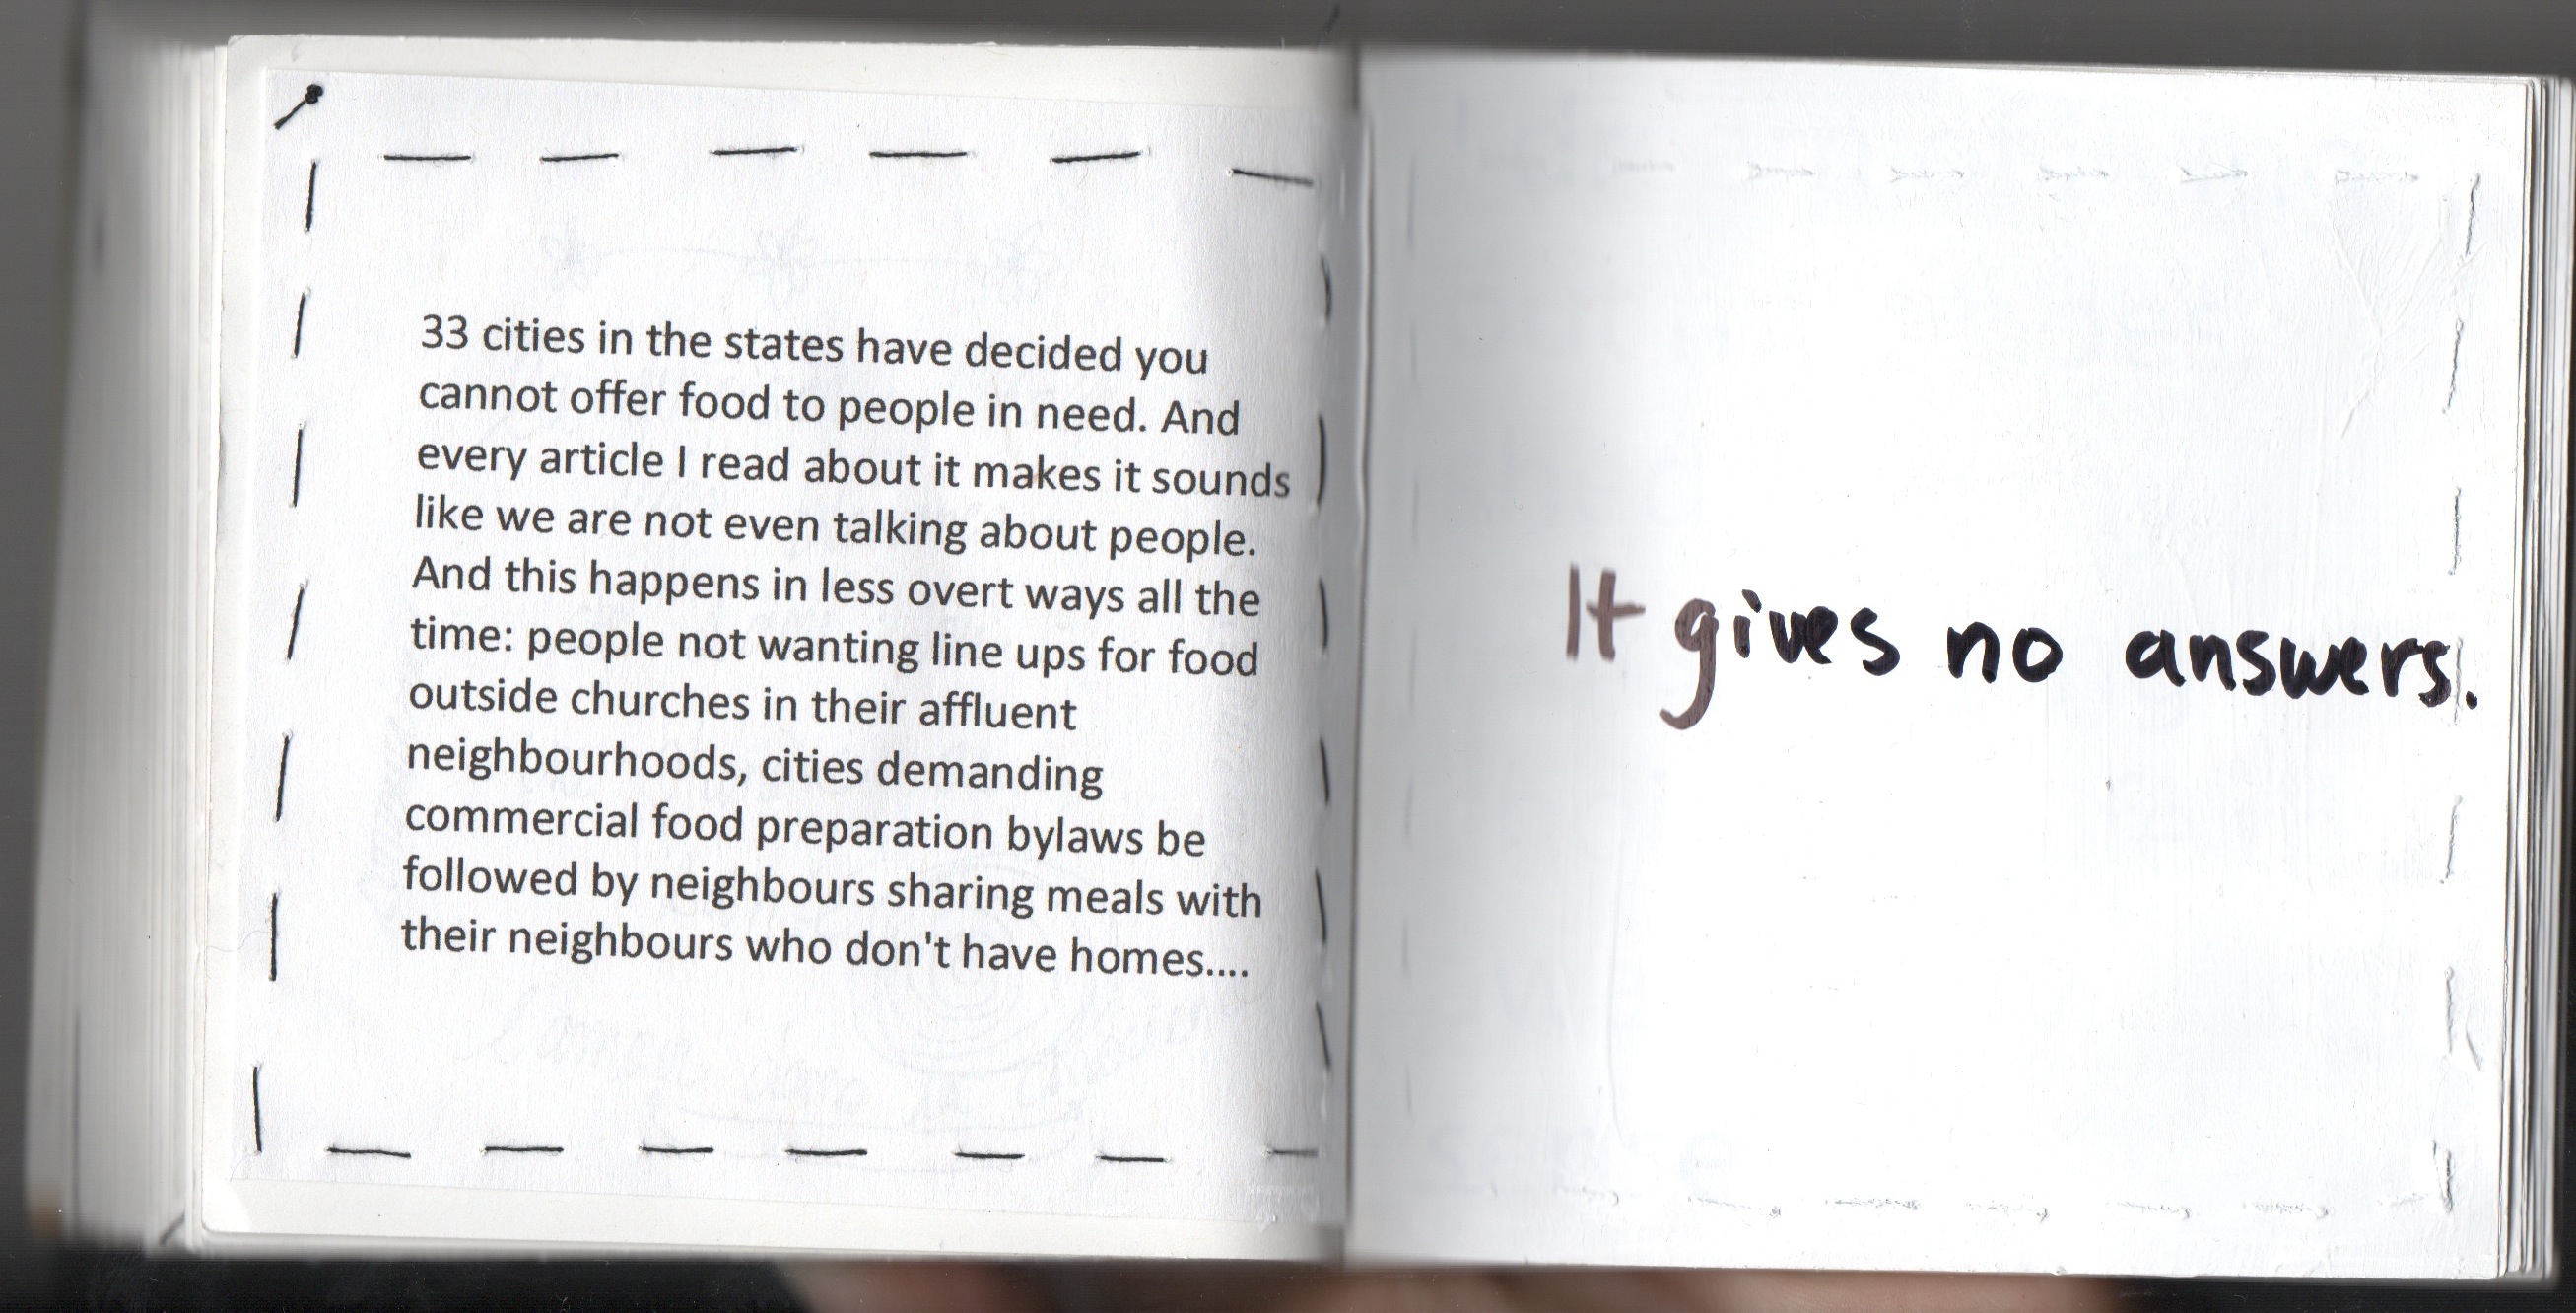 33 cities in the states have decided you
cannot offer food to people in need. And
every article I read about it makes it sounds
like we are not even talking about people.
And this happens in less overt ways all the
time: people not wanting line ups for food
outside churches in their affluent
neighbourhoods, cities demanding
commercial food preparation bylaws be
followed by neighbours sharing meals with
their neighbours who don't have homes....
It gives no answers.